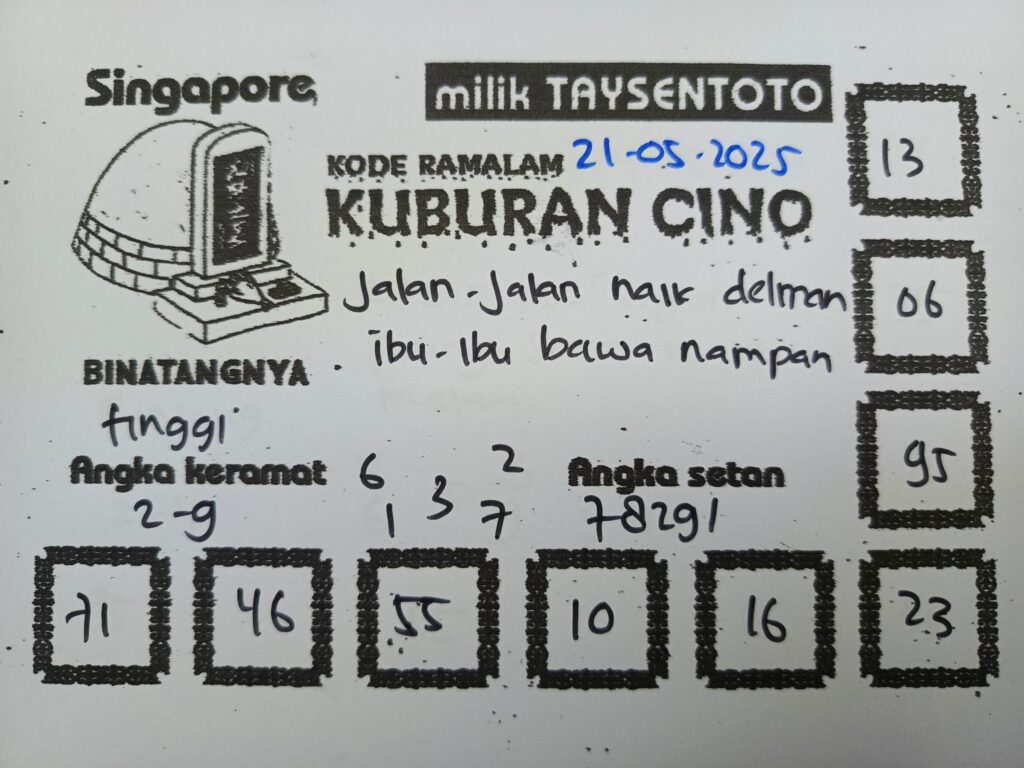 Singapore
milik TAYSENTOTO
KODE RAMALAM 21-05-2025
KUBURAN CINO
Jalan-Jalan naik delman
ibu-Ibu bawa nampan
BINATANGNYA
tinggi
Angka keramat
2-9
6 2
3
1 7
Angka setan
78291
13
06
95
71 46 55 10 16 23